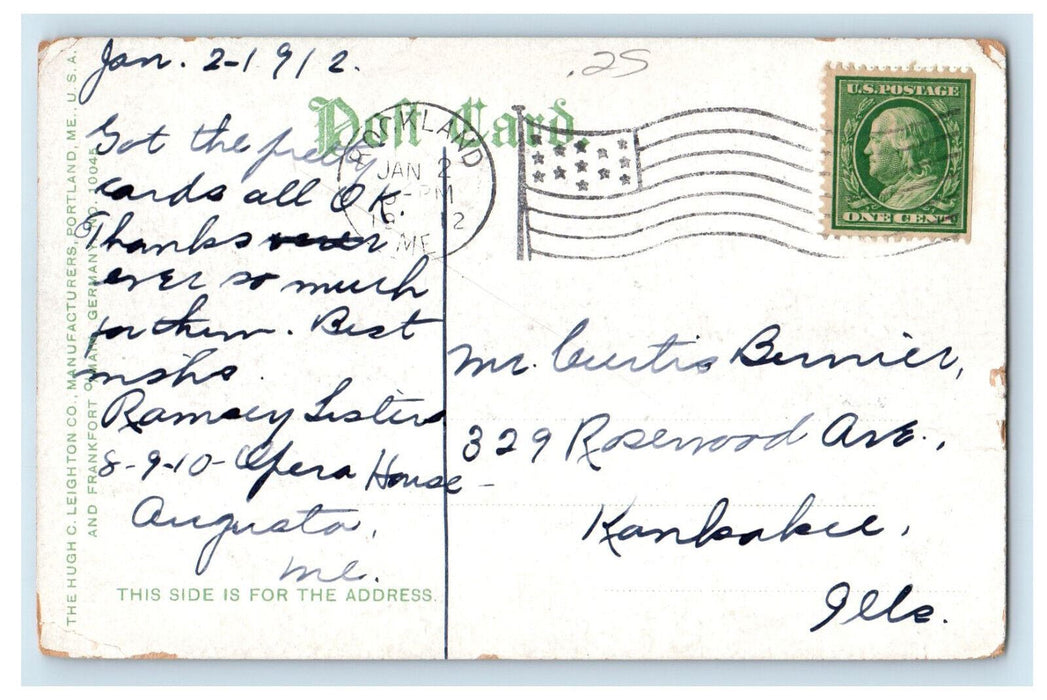 Jan. 2-1912.
.25
Post Card.
Got the pretty
cards all OK.
Thanks
ever so much
for them. Best
wishs.
Ramsey Sisters
8-9-10- Opera House -
Augusta,
Me.
THIS SIDE IS FOR THE ADDRESS.
THE HUGH C. LEIGHTON CO., MANUFACTURERS, PORTLAND, ME., U.S.A.
AND FRANKFORT O/MAIN, GERMANY. NO. 10045
ROCKLAND
JAN 2
-PM
12
ME.
U.S. POSTAGE
ONE CENT
Mr. Curtis Bernier,
329 Rosewood Ave.,
Kankakee,
Ills.